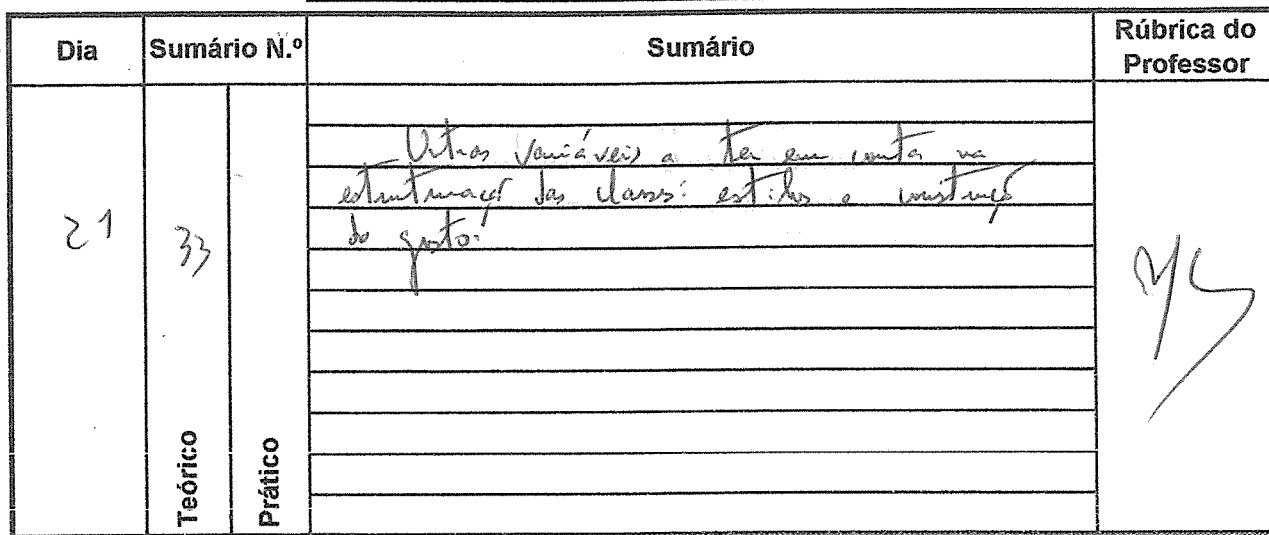 Dia Sumário N.º Sumário Rúbrica do Professor
21 33
Outras variáveis a ter em conta na
estruturação das classes: estilos e construção
do gosto.
Teórico Prático